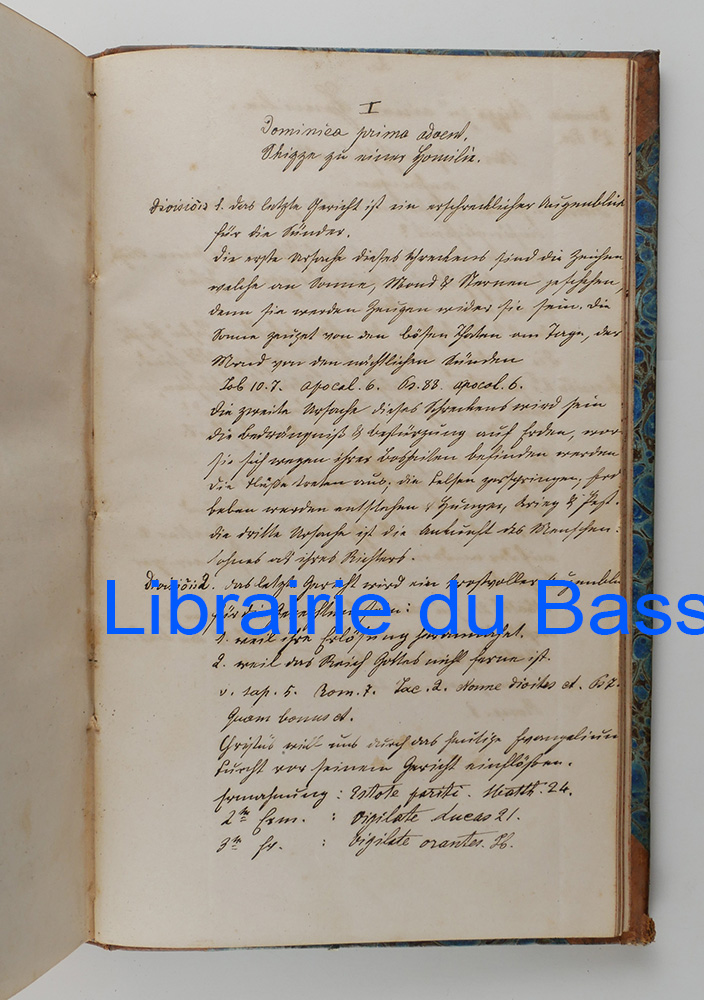 I
Dominica prima advent.
Skizze zu einer Homilie.
Divisio 1. Das letzte Gericht ist ein erschrecklicher Augenblick
für die Sünder.
Die erste Ursache dieses Schreckens sind die Zeichen
welche an Sonne, Mond & Sternen geschehen,
denn sie werden Zeugen wider sie sein. Die
Sonne zeuget von den bösen Thaten am Tage, der
Mond von den nächtlichen Sünden
Job 10.7. apocal. 6. Ps. 88. apocal. 6.
Die zweite Ursache dieses Schreckens wird sein
die Bedrängniß & Bestürzung auf Erden, wor
sie sich wegen ihrer Bosheiten befinden werden
die Flüße treten aus; die Felsen zerspringen; Erd
beben werden entstehen & Hunger, Krieg & Pest.
Die dritte Ursache ist die Ankunft des Menschen:
sohnes als ihres Richters.
Divisio 2. Das letzte Gericht wird ein trostvoller
für die :
1. weil ihre Erlösung herannahet.
2. weil das Reich Gottes nicht ferne ist.
v. sap. 5. Rom. 7. Jac. 2. Nonne divites et. Ps 72.
Quam bonus et.
Christus will uns durch das heutige Evangelium
Furcht vor seinem Gericht einflößen.
Ermahnung : Estote parati. Matth. 24.
2te Erm. : Vigilate Lucas 21.
3te Er. : Vigilate orantes.
Librairie du Bass